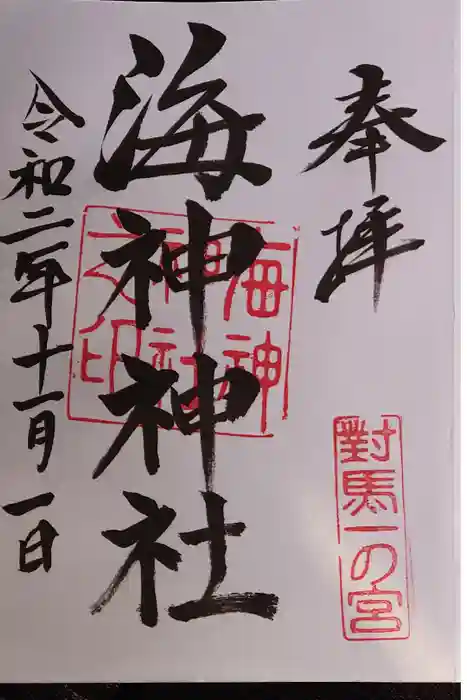 奉拝
對馬一の宮
海神神社
海神神社之印
令和二年十一月一日